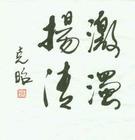 激濁
揚清
克昭